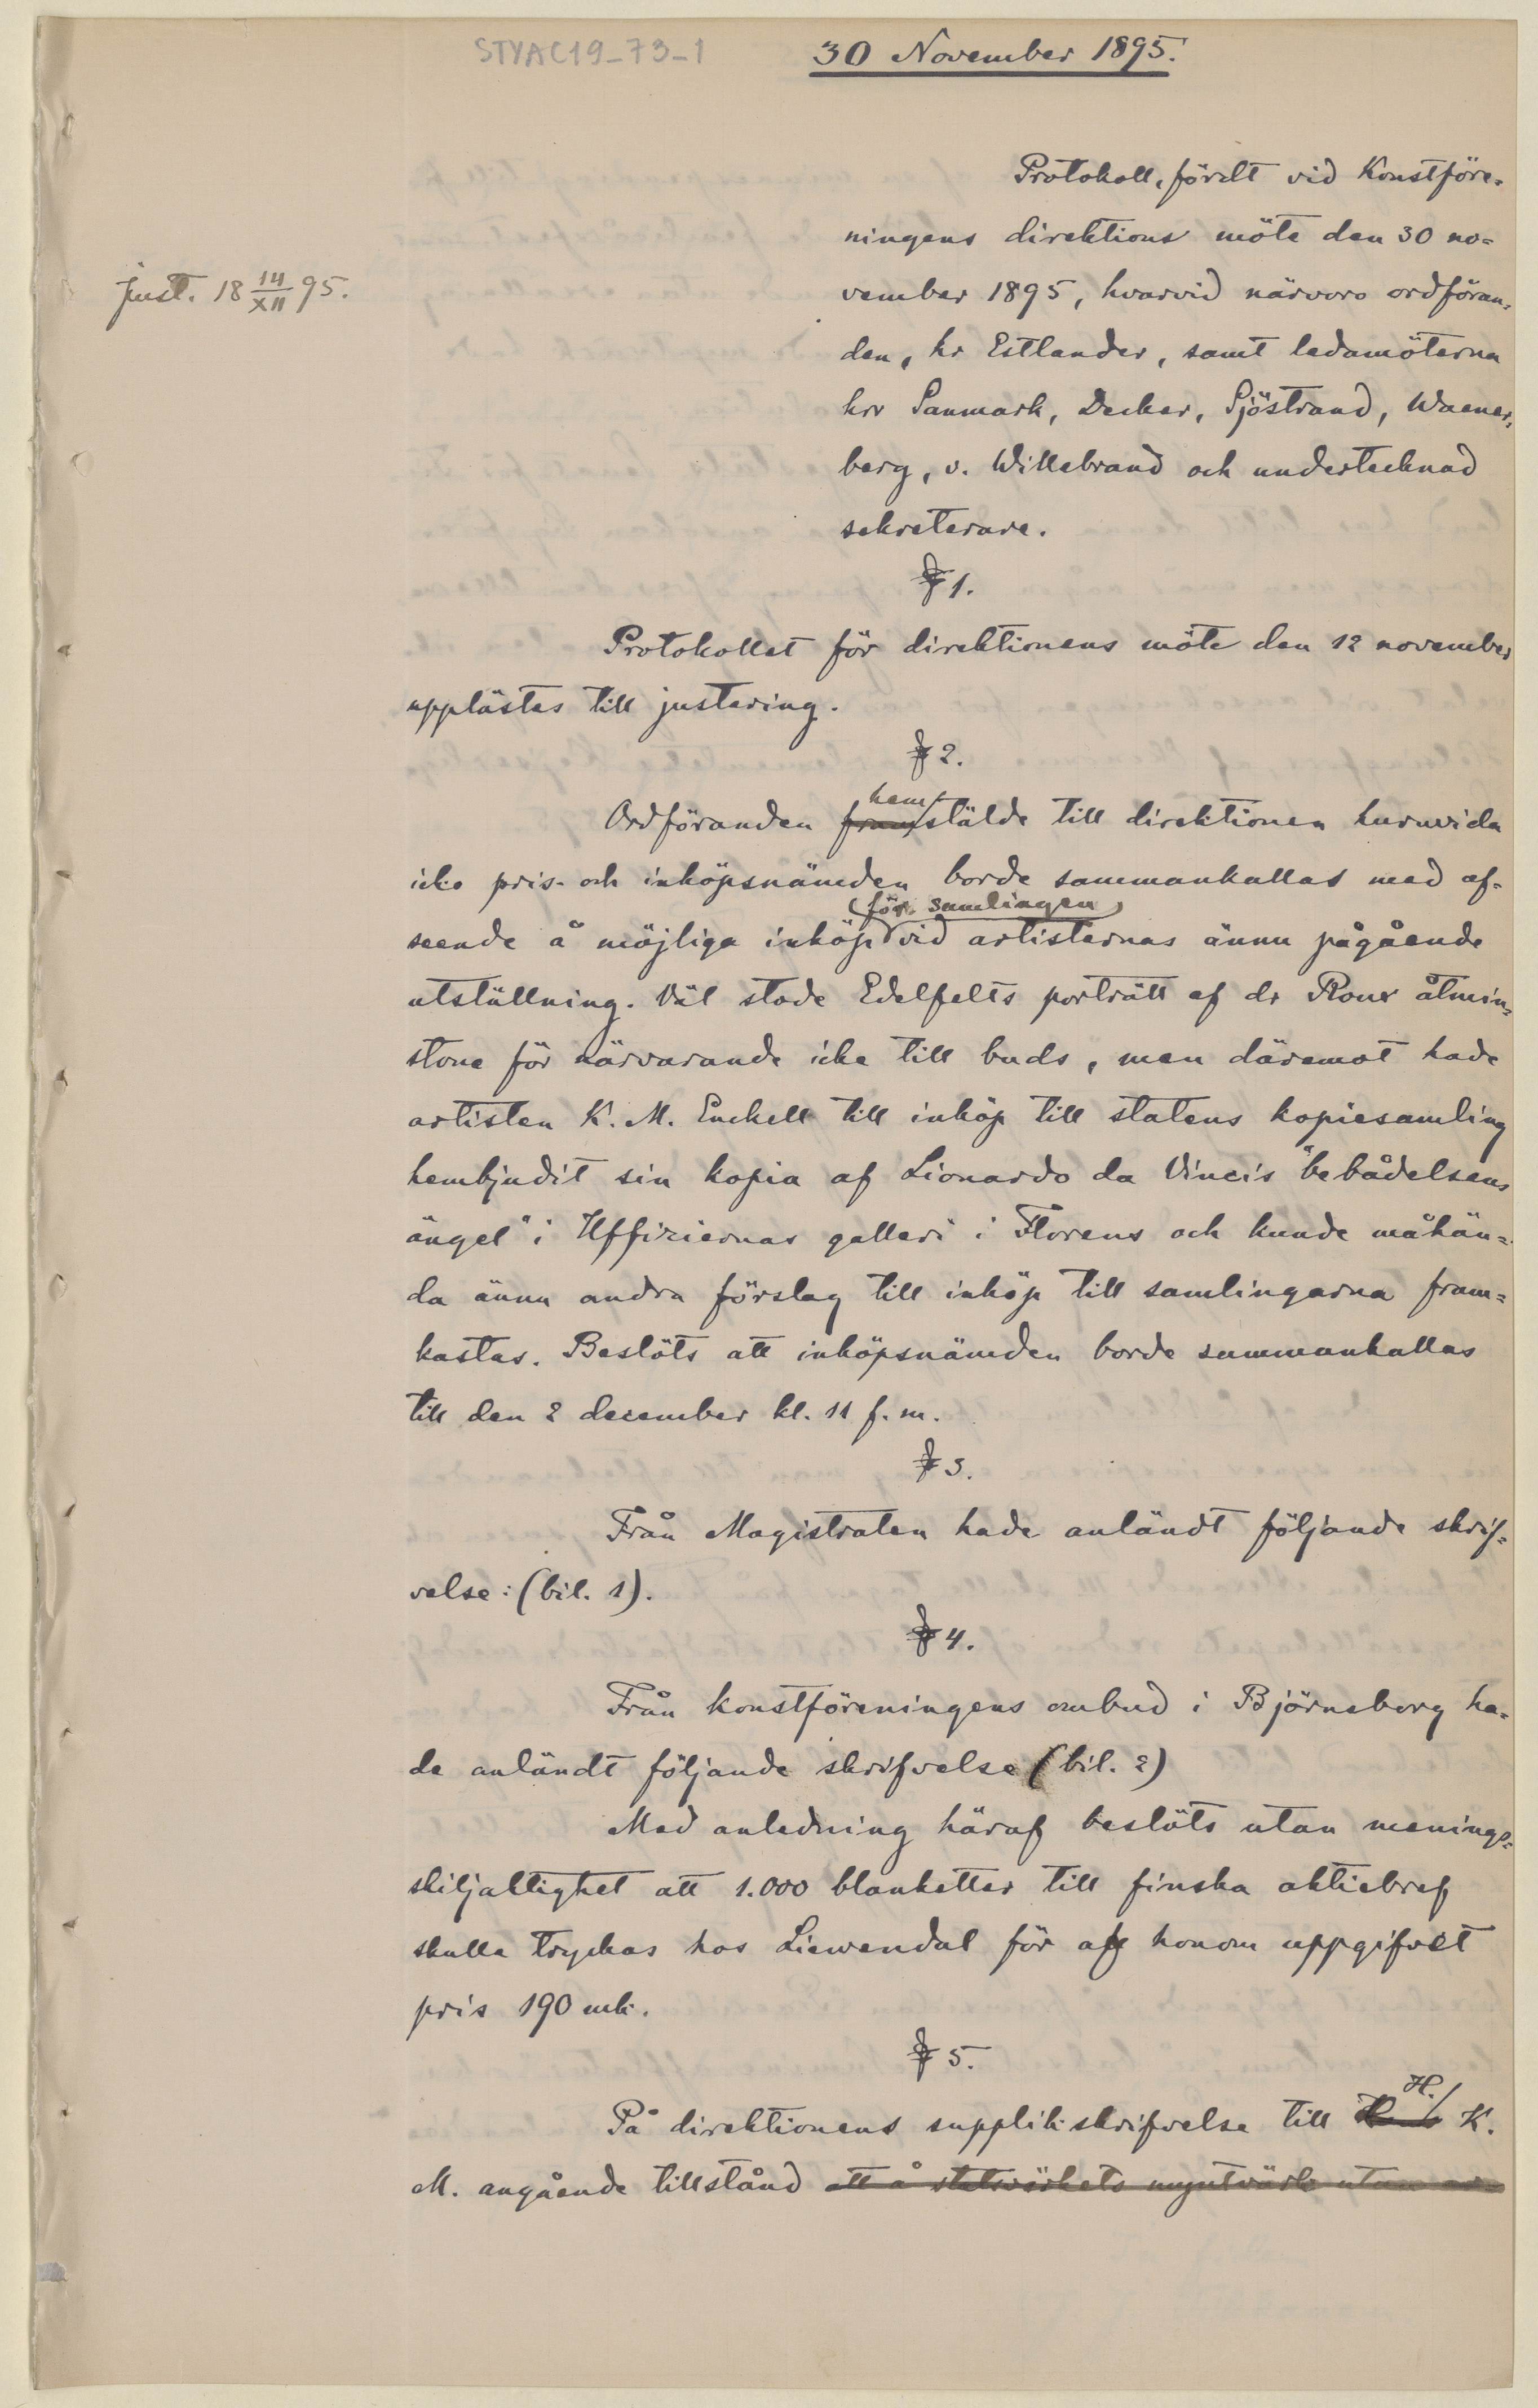 STYAC19_73_1
30 November 1895.
just. 18 14/XII 95.
Protokoll, fördt vid Konstföre=
ningens direktions möte den 30 no=
vember 1895, hvarvid närvoro ordföran=
den, hr Estlander, samt ledamöterna
hrr Sanmark, Decker, Sjöstrand, Waener=
berg, v. Willebrand och undertecknad
sekreterare.
§ 1.
Protokollet för direktionens möte den 12 november
upplästes till justering.
§ 2.
hem
Ordföranden framstälde till direktionen huruvida
icke pris- och inköpsnämden borde sammankallas med af=
för samlingen
seende å möjliga inköp vid artisternas ännu pågående
utställning. Väl stode Edelfelts porträtt af dr Roux åtmin=
stone för närvarande icke till buds, men däremot hade
artisten K. M. Enckell till inköp till statens kopiesamling
hembjudit sin kopia af Lionardo da Vincis "bebådelsens
ängel" i Uffiziernas galleri i Florens och kunde måhän=
da ännu andra förslag till inköp till samlingarna fram=
kastas. Beslöts att inköpsnämden borde sammankallas
till den 2 december kl. 11 f. m.
§ 3.
Från Magistraten hade anländt följande skrif=
velse: (bil. 1).
§ 4.
Från konstföreningens ombud i Björneborg ha=
de anländt följande skrifvelse (bil. 2)
Med anledning häraf beslöts utan menings=
skiljaktighet att 1.000 blanketter till finska aktiebref
skulle tryckas hos Liewendal för af honom uppgifvet
pris 190 mk.
§ 5.
H.
På direktionens supplikskrifvelse till K.
M. angående tillstånd att å statsvärkets myntvärk utan